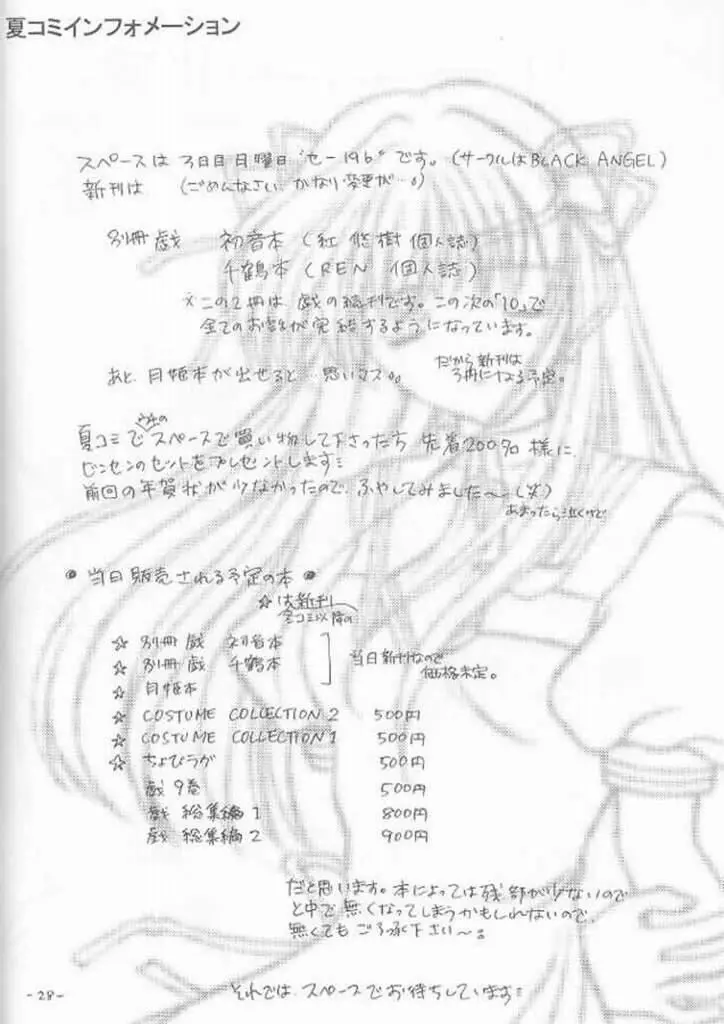 夏コミインフォメーション
スペースは3日目日曜日"セー19b"です。(サークルはBLACK ANGEL)
新刊は (ごめんなさい、かなり変更が…。)
別冊 戯 初音本 (紅 悠樹 個人誌)
千鶴本 (REN 個人誌)
※この2冊は 戯の続刊です。この次の「10」で
全てのお話が完結するようになっています。
あと、月姫本が出せると…思いマス。。
だから新刊は
3冊になる予定。
夏コミでウチのスペースで買い物して下さった方 先着200名様に
ビンセンのセットをプレゼントします
前回の年賀状が少なかったので、ふやしてみました〜(笑)
あまったら泣くけど
● 当日販売される予定の本 ●
☆は新刊
冬コミ以降の
☆ 別冊 戯 初音本
☆ 別冊 戯 千鶴本
☆ 月姫本
当日新刊なので
価格未定。
☆ COSTUME COLLECTION 2 500円
☆ COSTUME COLLECTION 1 500円
☆ ちょびラグ 500円
戯 9巻 500円
戯 総集編 1 800円
戯 総集編 2 900円
だと思います。本によっては残部が少ないので
と中で無くなってしまうかもしれないので、
無くてもごろ承下さい〜。
それでは、スペースでお待ちしています
-28-